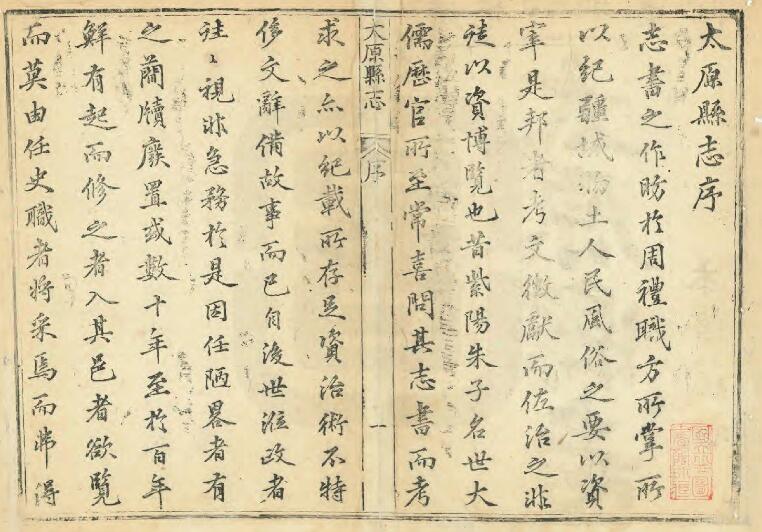 太原縣志序
志書之作昉於周禮職方所掌所
以紀疆域物土人民風俗之要以資
宰是邦者考文徵獻而佐治之非
徒以資博覽也昔紫陽朱子名世大
儒歷官所至常喜問其志書而考
太原縣志
序
一
求之亦以紀載所存足資治術不特
侈文辭備故事而已自後世涖政者
往〻視非急務於是因任陋畧者有
之蕳牘廢置或數十年至於百年
鮮有起而修之者入其邑者欲覽
而莫由任史職者將采焉而弗得